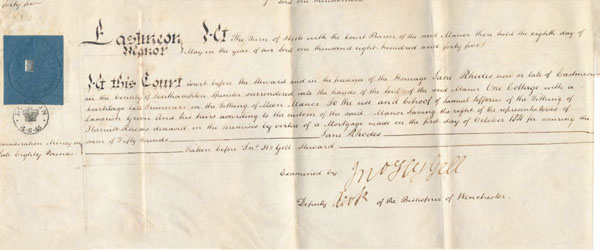 forty five
Eastmeon Manor At The Turn of Hock with the Court Baron of the said Manor there held the eighth day of
May in the year of our lord one thousand eight hundred and forty five
At this Court Court before the Steward and in the presence of the Homage Jane Rhodes now or late of Eastmeon
in the County of Southampton Spinster surrendered into the hands of the lord of the said Manor One Cottage with a
curtilage and in the Tithing of Meon Manor To the use and behoof of Samuel Jefferies of the Tithing of
Langrish green And his heirs according to the custom of the said Manor Saving the right of the representatives of
Rhodes deceased in the premises by virtue of a Mortgage made on the first day of October for securing the
sum of Fifty Pounds Jane Rhodes
Taken before Jno. Hy Gyll Steward
Consideration Money
Eighty Pounds
Examined by Jno Hy Gyll
Deputy Clerk of the Bishopric of Winchester